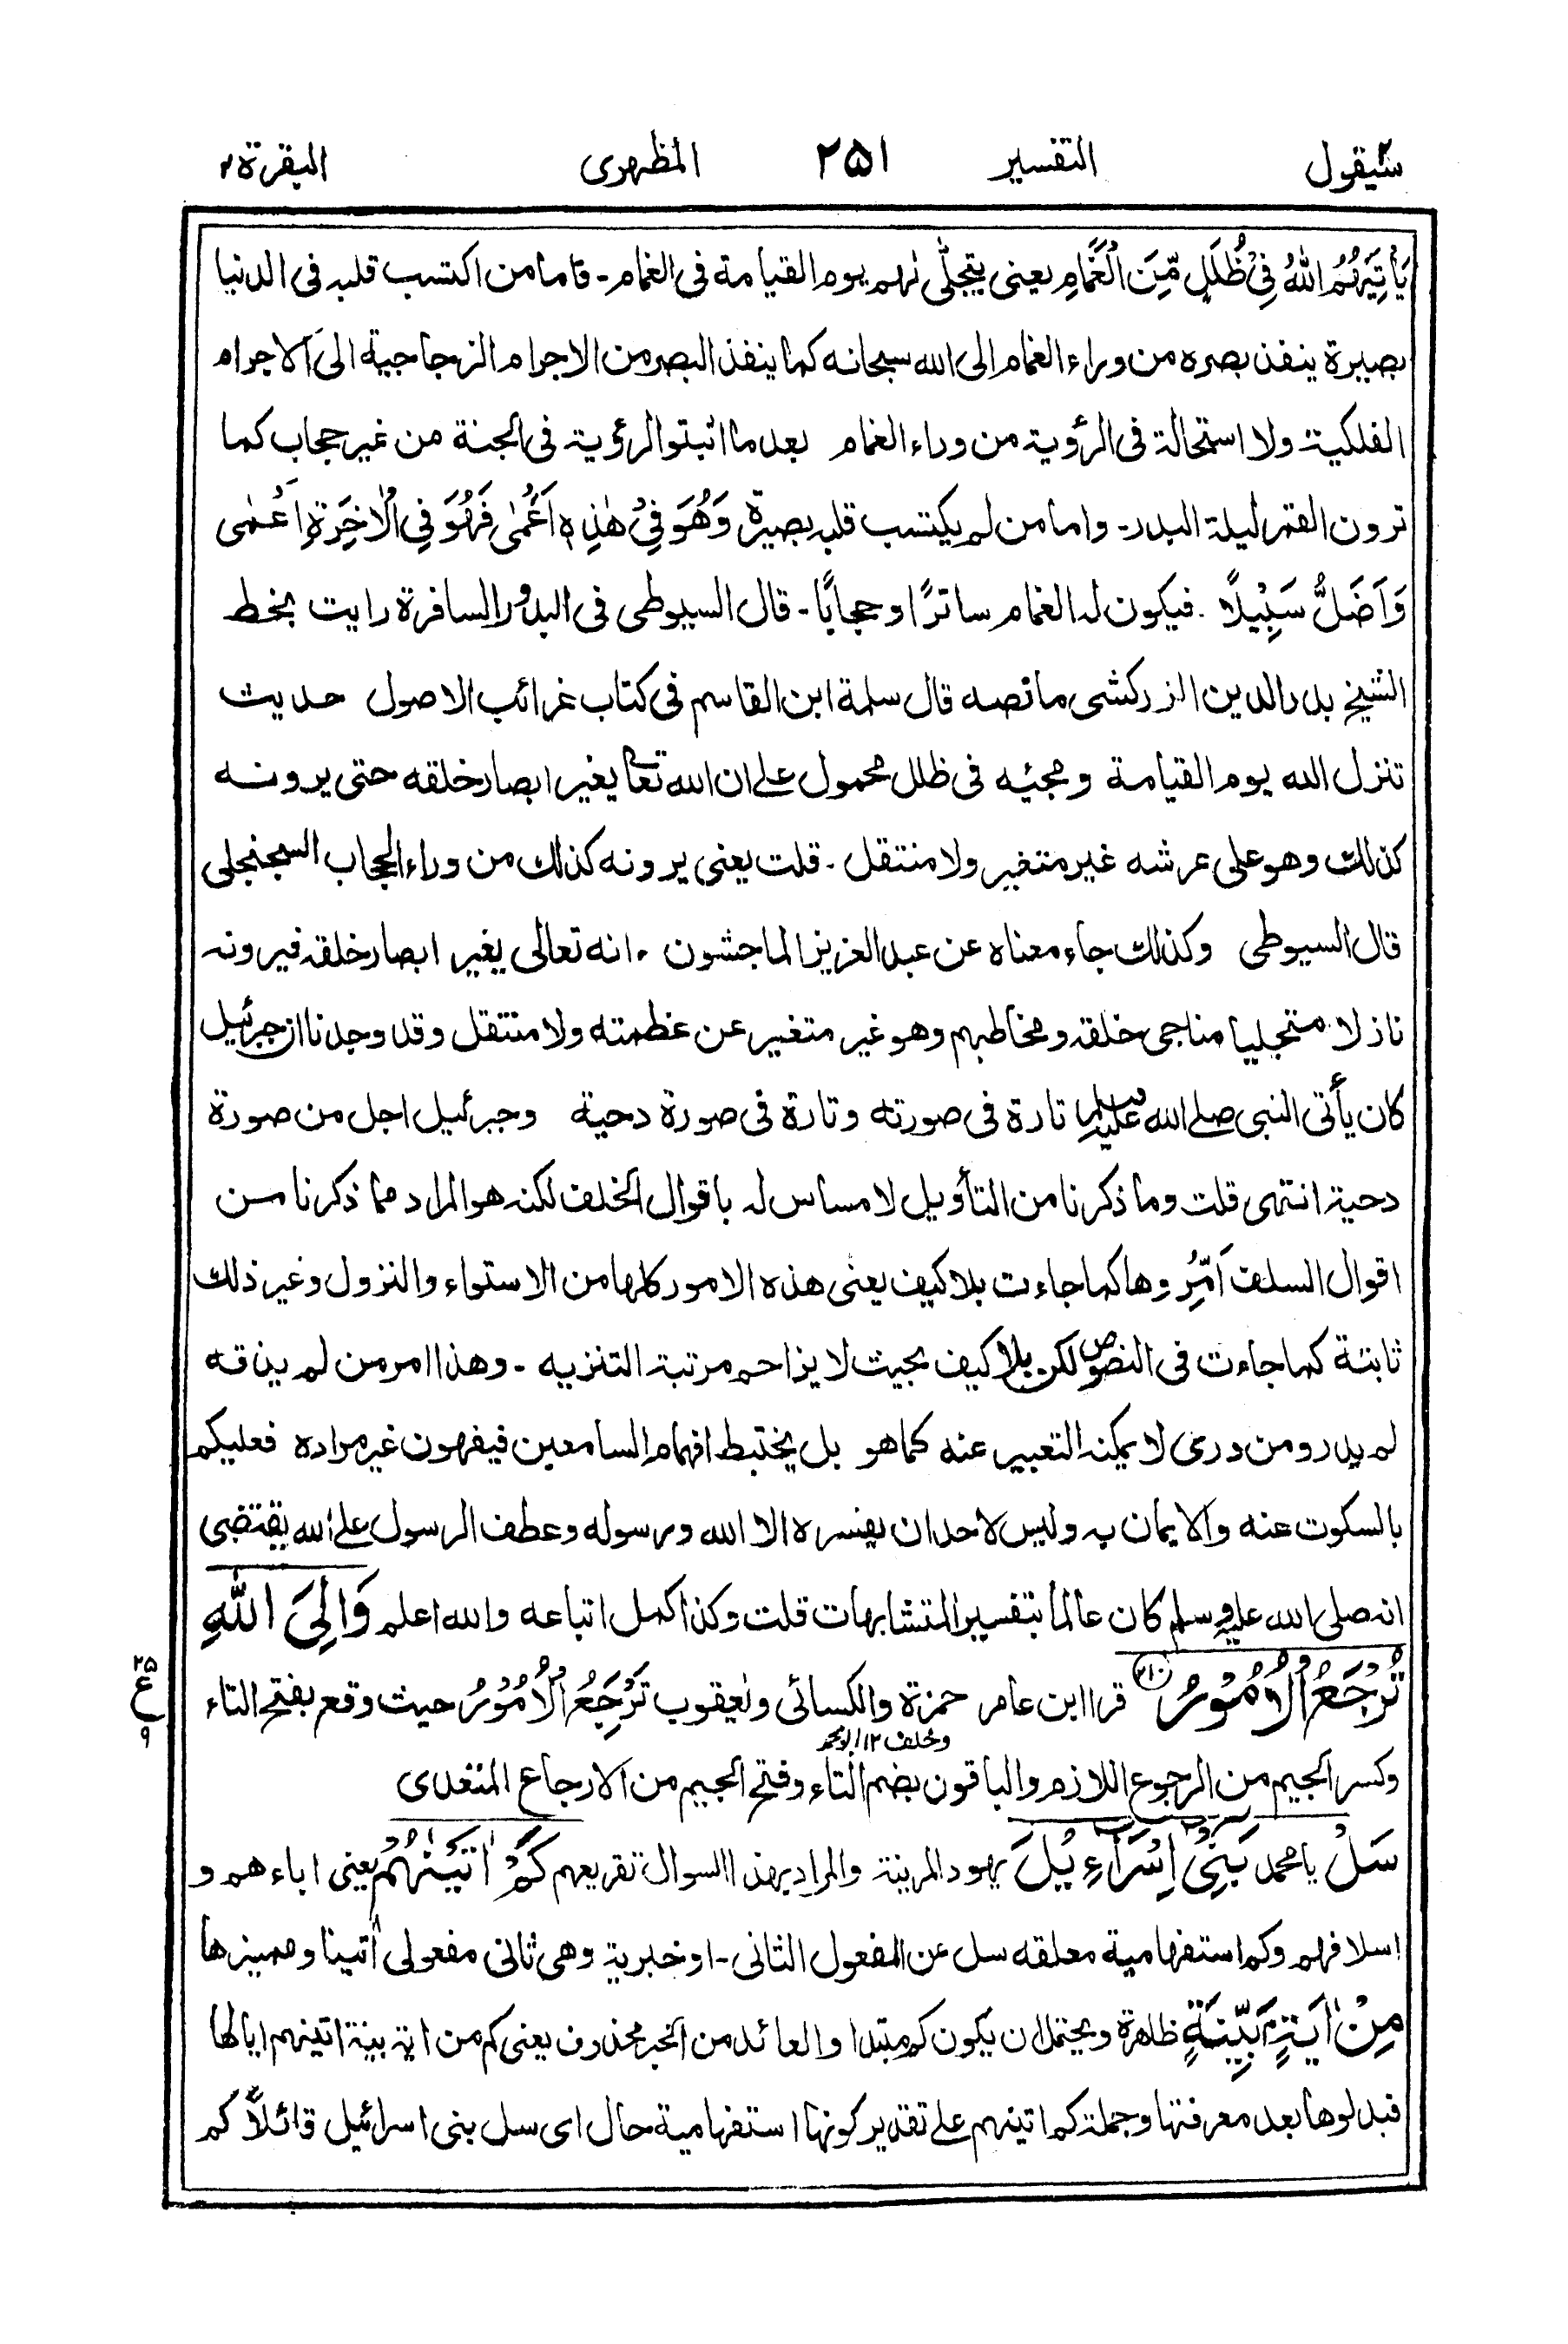 سيقول ٢ التفسير ٢۵١ المظهرى البقرة ٢
يَّأْتِيَهُمُ اللّٰهُ فِيْ ظُلَلٍ مِّنَ الْغَمَامِ يعنى يتجلّى لهم يوم القيامة فى الغمام - فاما من اكتسب قلبه فى الدنيا
بصيرة ينفذ بصره من وراء الغمام الى الله سبحانه كما ينفذ البصر من الاجرام الزجاجية الى الاجرام
الفلكية ولا استحالة فى الرؤية من وراء الغمام بعد ما اثبتوا الرؤية فى الجنة من غير حجاب كما
ترون القمر ليلة البدر - واما من لم يكتسب قلبه بصيرة وَهُوَ فِيْ هٰذِهٖ اَعْمٰى فَهُوَ فِي الْاٰخِرَةِ اَعْمٰى
وَاَضَلُّ سَبِيْلًا - فيكون له الغمام ساترًا وحجابًا - قال السيوطى فى البدور السافرة رايت بخط
الشيخ بدر الدين الزركشى ما نصه قال سلمة ابن القاسم فى كتاب غرائب الاصول حديث
تنزل الله يوم القيامة ومجيئه فى ظلل محمول على ان الله تعالى يغير ابصار خلقه حتى يرونه
كذلك وهو على عرشه غير متغير ولا منتقل - قلت يعنى يرونه كذلك من وراء الحجاب السجنجلى
قال السيوطى وكذلك جاء معناه عن عبد العزيز الماجشون ، انه تعالى يغير ابصار خلقه فيرونه
نازلا متجليا مناجى خلقه ومخاطبهم وهو غير متغير عن عظمته ولا منتقل وقد وجدنا ان جبرئيل
كان يأتى النبى صلى الله عليه وسلم تارة فى صورته وتارة فى صورة دحية وجبرئيل اجل من صورة
دحية انتهى قلت وما ذكرنا من التأويل لا مساس له باقوال الخلف لكنه هو المراد مما ذكرنا من
اقوال السلف اَمِّرُوها كما جاءت بلا كيف يعنى هذه الامور كلها من الاستواء والنزول وغير ذلك
ثابتة كما جاءت فى النصوص لكن بلا كيف بحيث لا يزاحم مرتبة التنزيه - وهذا امر من لم يذقه
لم يدر ومن درى لا يمكنه التعبير عنه كما هو بل يختبط افهام السامعين فيفهون غير مراده فعليكم
بالسكوت عنه والايمان به وليس لاحد ان يفسره الا الله ورسوله وعطف الرسول على الله يقتضى
انه صلى الله عليه وسلم كان عالما بتفسير المتشابهات قلت وكذا كمل اتباعه والله اعلم وَاِلَى اللّٰهِ
تُرْجَعُ الْاُمُوْرُ ٢١٠ قرا ابن عامر حمزة والكسائى ويعقوب تَرْجِعُ الْاُمُوْرُ حيث وقع بفتح التاء
٢۵ ع ٩
وخلف ١٢ ابو محمد
وكسر الجيم من الرجوع اللازم والباقون بضم التاء وفتح الجيم من الارجاع المتعدى
سَلْ يا محمد بَنِيْ اِسْرَآءِيْلَ يهود المدينة والمراد بهذا السوال تقريعهم كَمْ اٰتَيْنٰهُمْ يعنى اباءهم و
اسلافهم وكم استفهامية معلقه سل عن المفعول الثانى - او خبرية وهى ثانى مفعولى اتينا ومميزها
مِنْ اٰيَةٍ بَيِّنَةٍ ظاهرة ويحتمل ان يكون كم مبتدا والعائد من الخبر محذوف يعنى كم من اية بينة اتينهم اياها
فبدلوها بعد معرفتها وجملة كم اتينهم على تقدير كونها استفهامية حال اى سل بنى اسرائيل قائلًا كم